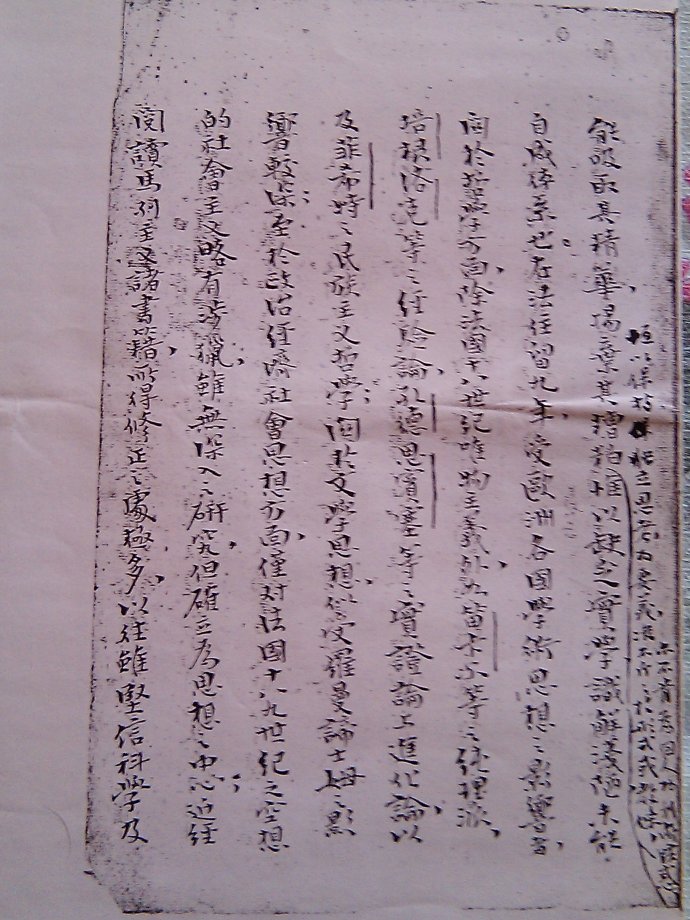 能吸取其精華，揚棄其糟粕，惟以缺乏實學，識解淺陋，未能
恒以保持獨立思考為要義
自成体系也。在法住留九年，受歐洲各國學術思想之影響，
關於哲學方面，除法國十八世紀唯物主義外，如笛卡尔等之純理派，
培根洛克等之經驗論，孔德思賓塞等之實證論上進化論，以
及菲希特之民族主义哲學；關於文學思想，受羅曼諦士姆之影
響較深；至於政治經濟社會思想方面，僅对法國十八九世紀之空想
的社會主义略有涉獵，雖無深入之研究，但確立為思想之中心；近經
閱讀馬列主义諸書籍，所得修正之處極多，以往雖堅信科學及